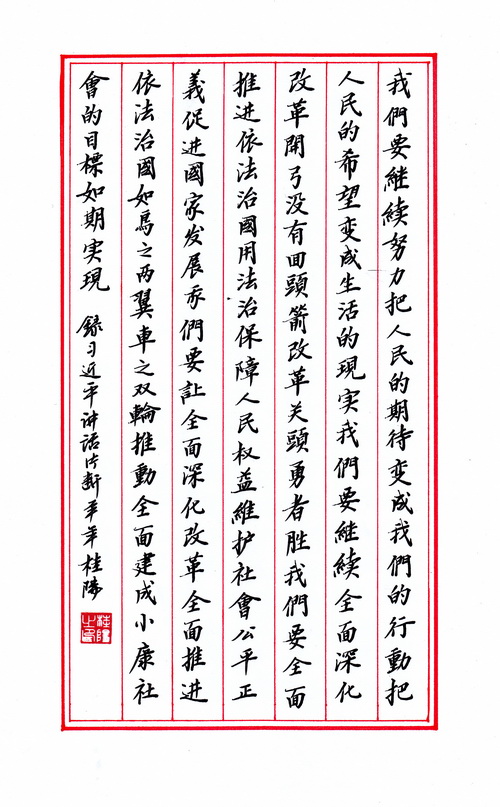 我們要継續努力把人民的期待变成我們的行動把
人民的希望变成生活的現实我們要継續全面深化
改革開弓没有回頭箭改革关頭勇者胜我們要全面
推进依法治國用法治保障人民权益維护社會公平正
義促进國家发展我們要让全面深化改革全面推进
依法治國如鳥之两翼車之双輪推動全面建成小康社
會的目標如期实現 錄习近平讲话片断羊年桂陽